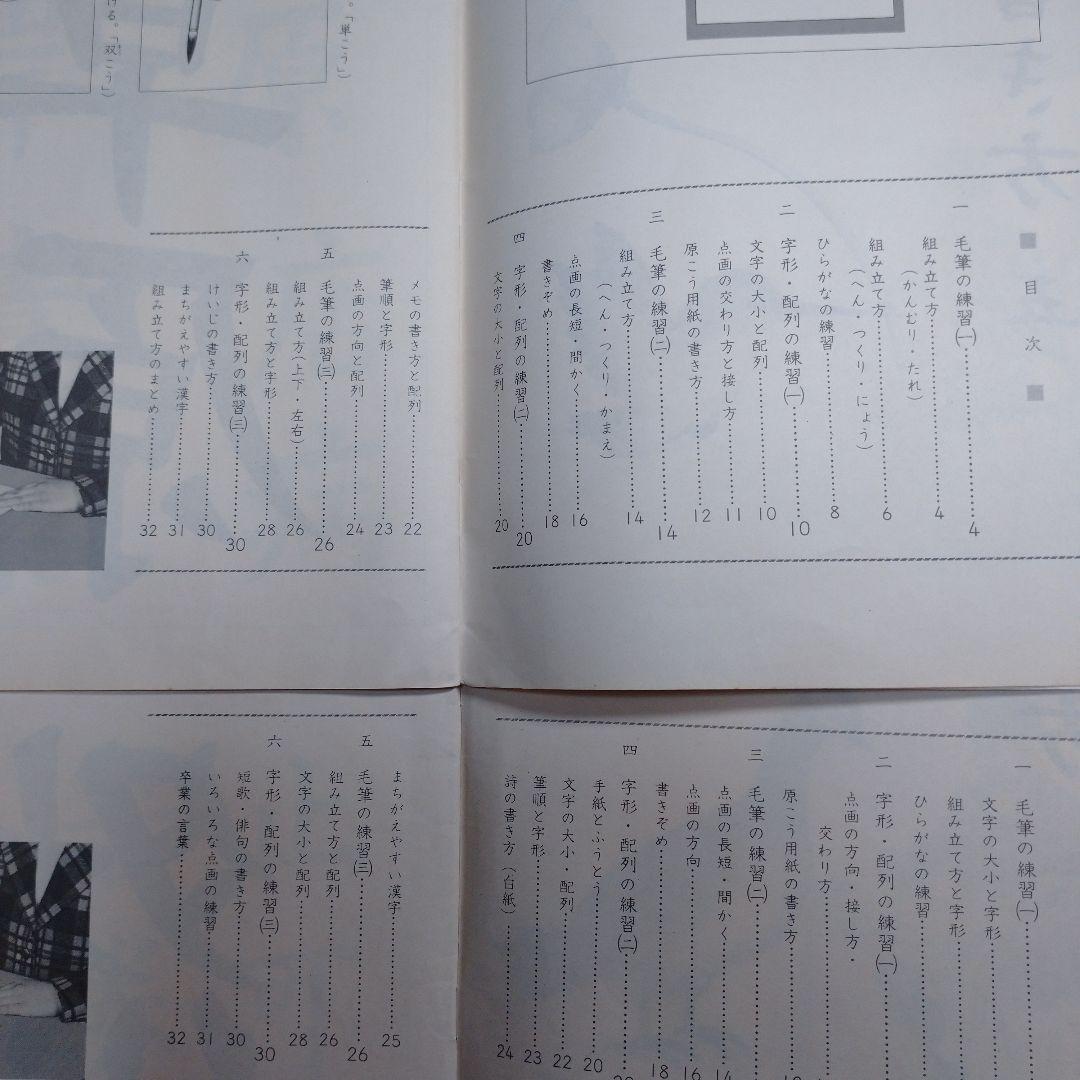 。「単こう」）
ける。「双こう」）
■目次■
一 毛筆の練習㈠……4
組み立て方……4
（かんむり・たれ）
組み立て方……6
（へん・つくり・にょう）
ひらがなの練習……8
二 字形・配列の練習㈠……10
文字の大小と配列……10
点画の交わり方と接し方……11
原こう用紙の書き方……12
三 毛筆の練習㈡……14
組み立て方……14
（へん・つくり・かまえ）
点画の長短・間かく……16
書きぞめ……18
四 字形・配列の練習㈡……20
文字の大小と配列……20
メモの書き方と配列……22
筆順と字形……23
点画の方向と配列……24
五 毛筆の練習㈢……26
組み立て方（上下・左右）……26
組み立て方と字形……28
六 字形・配列の練習㈢……30
けいじの書き方……30
まちがえやすい漢字……31
組み立て方のまとめ……32
一 毛筆の練習㈠……
文字の大小と字形……
組み立て方と字形……
ひらがなの練習……
二 字形・配列の練習㈠……
点画の方向・接し方・
交わり方……
原こう用紙の書き方……
三 毛筆の練習㈡……
点画の長短・間かく……14
点画の方向……16
書きぞめ……18
四 字形・配列の練習㈡……
手紙とふうとう……20
文字の大小・配列……22
筆順と字形……23
詩の書き方（白紙）……24
まちがえやすい漢字……25
五 毛筆の練習㈢……26
組み立て方と配列……26
文字の大小と配列……28
六 字形・配列の練習㈢……30
短歌・俳句の書き方……30
いろいろな点画の練習……31
卒業の言葉……32